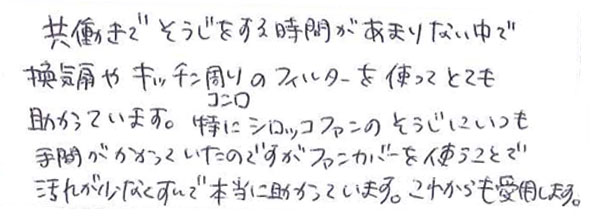 共働きで そうじをする時間が あまりない中で
換気扇や キッチン周りの フィルターを 使って とても
コンロ
助かっています。 特に シロッコファンの そうじにいつも
手間がかかっていたのですが ファンカバーを使うことで
汚れが少なくすんで 本当に助かっています。これからも愛用します。